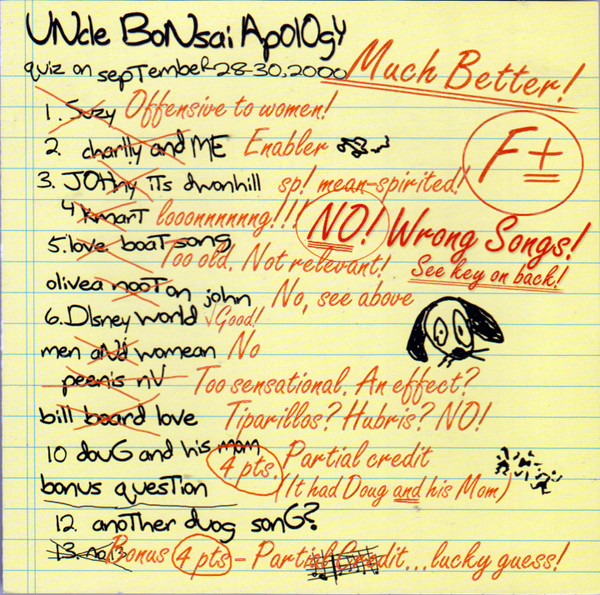 UNcle BoNsai Ap0l0gy
quiz on sepTember 28-30.2000
Much Better!
F+
1. Suzy Offensive to women!
2. char!!y and ME Enabler
3. JOHNy iTs dwonhill sp! mean-spirited!
4 KmarT looonnnnnng!!!
NO! Wrong Songs!
See key on back!
5. love boaT song Too old. Not relevant!
olivea nooTon john No, see above
6. DIsney world √Good!
men aNd womean No
peenis nV Too sensational. An effect?
bill board love Tiparillos? Hubris? NO!
10 douG and his mom 4 pts. Partial credit
(It had Doug and his Mom)
bonus quesTion
12 anoTher duog sonG?
13. Bonus 4 pts - Partial Credit...lucky guess!